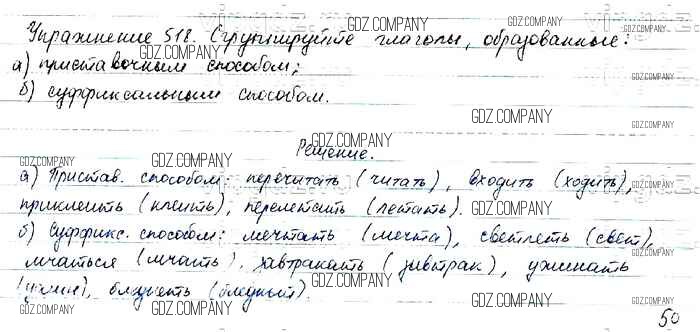 Упражнение 518. Сгруппируйте глаголы, образованные:
а) приставочным способом;
б) суффиксальным способом.
Решение.
а) Пристав. способом: перечитать (читать), входить (ходить),
приклеить (клеить), перелетать (летать).
б) Суффикс. способом: мечтать (мечта), светлеть (свет),
мчаться (мчать), завтракать (завтрак), ужинать
(ужин), бледнеть (бледный).
50
GDZ.COMPANY